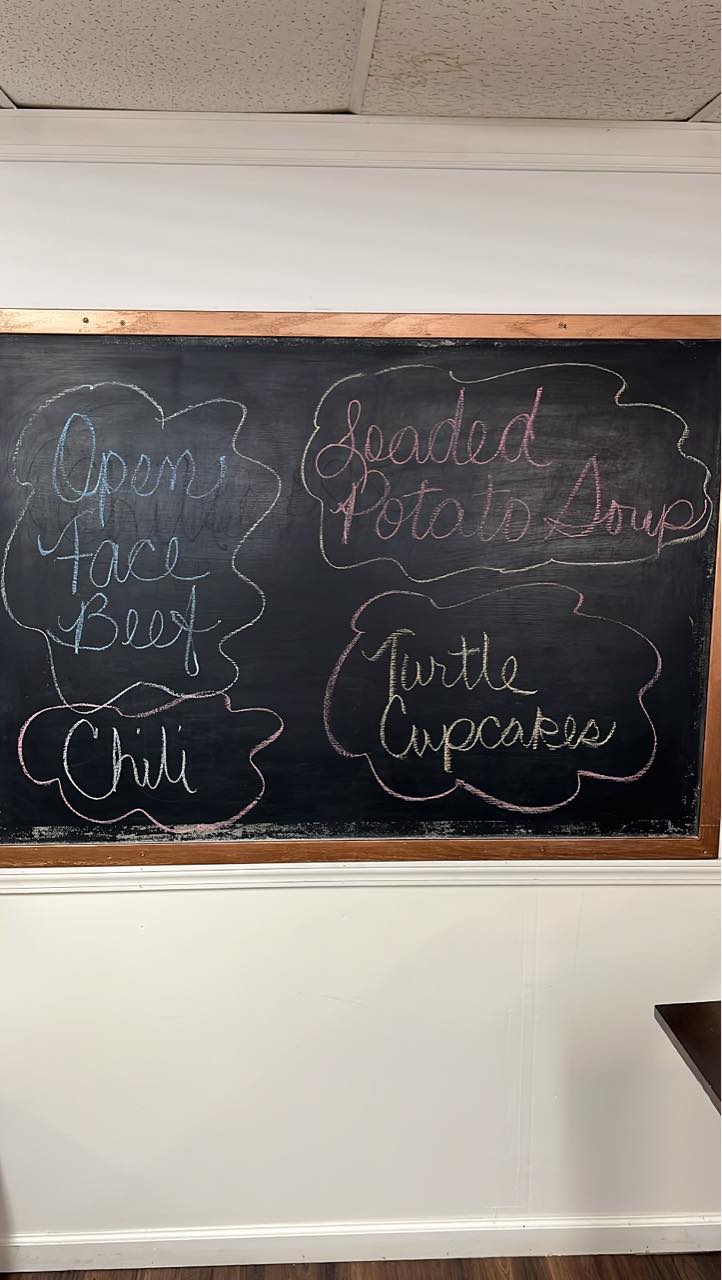 Open
Face
Beef
Chili
Loaded
Potato Soup
Turtle
Cupcakes